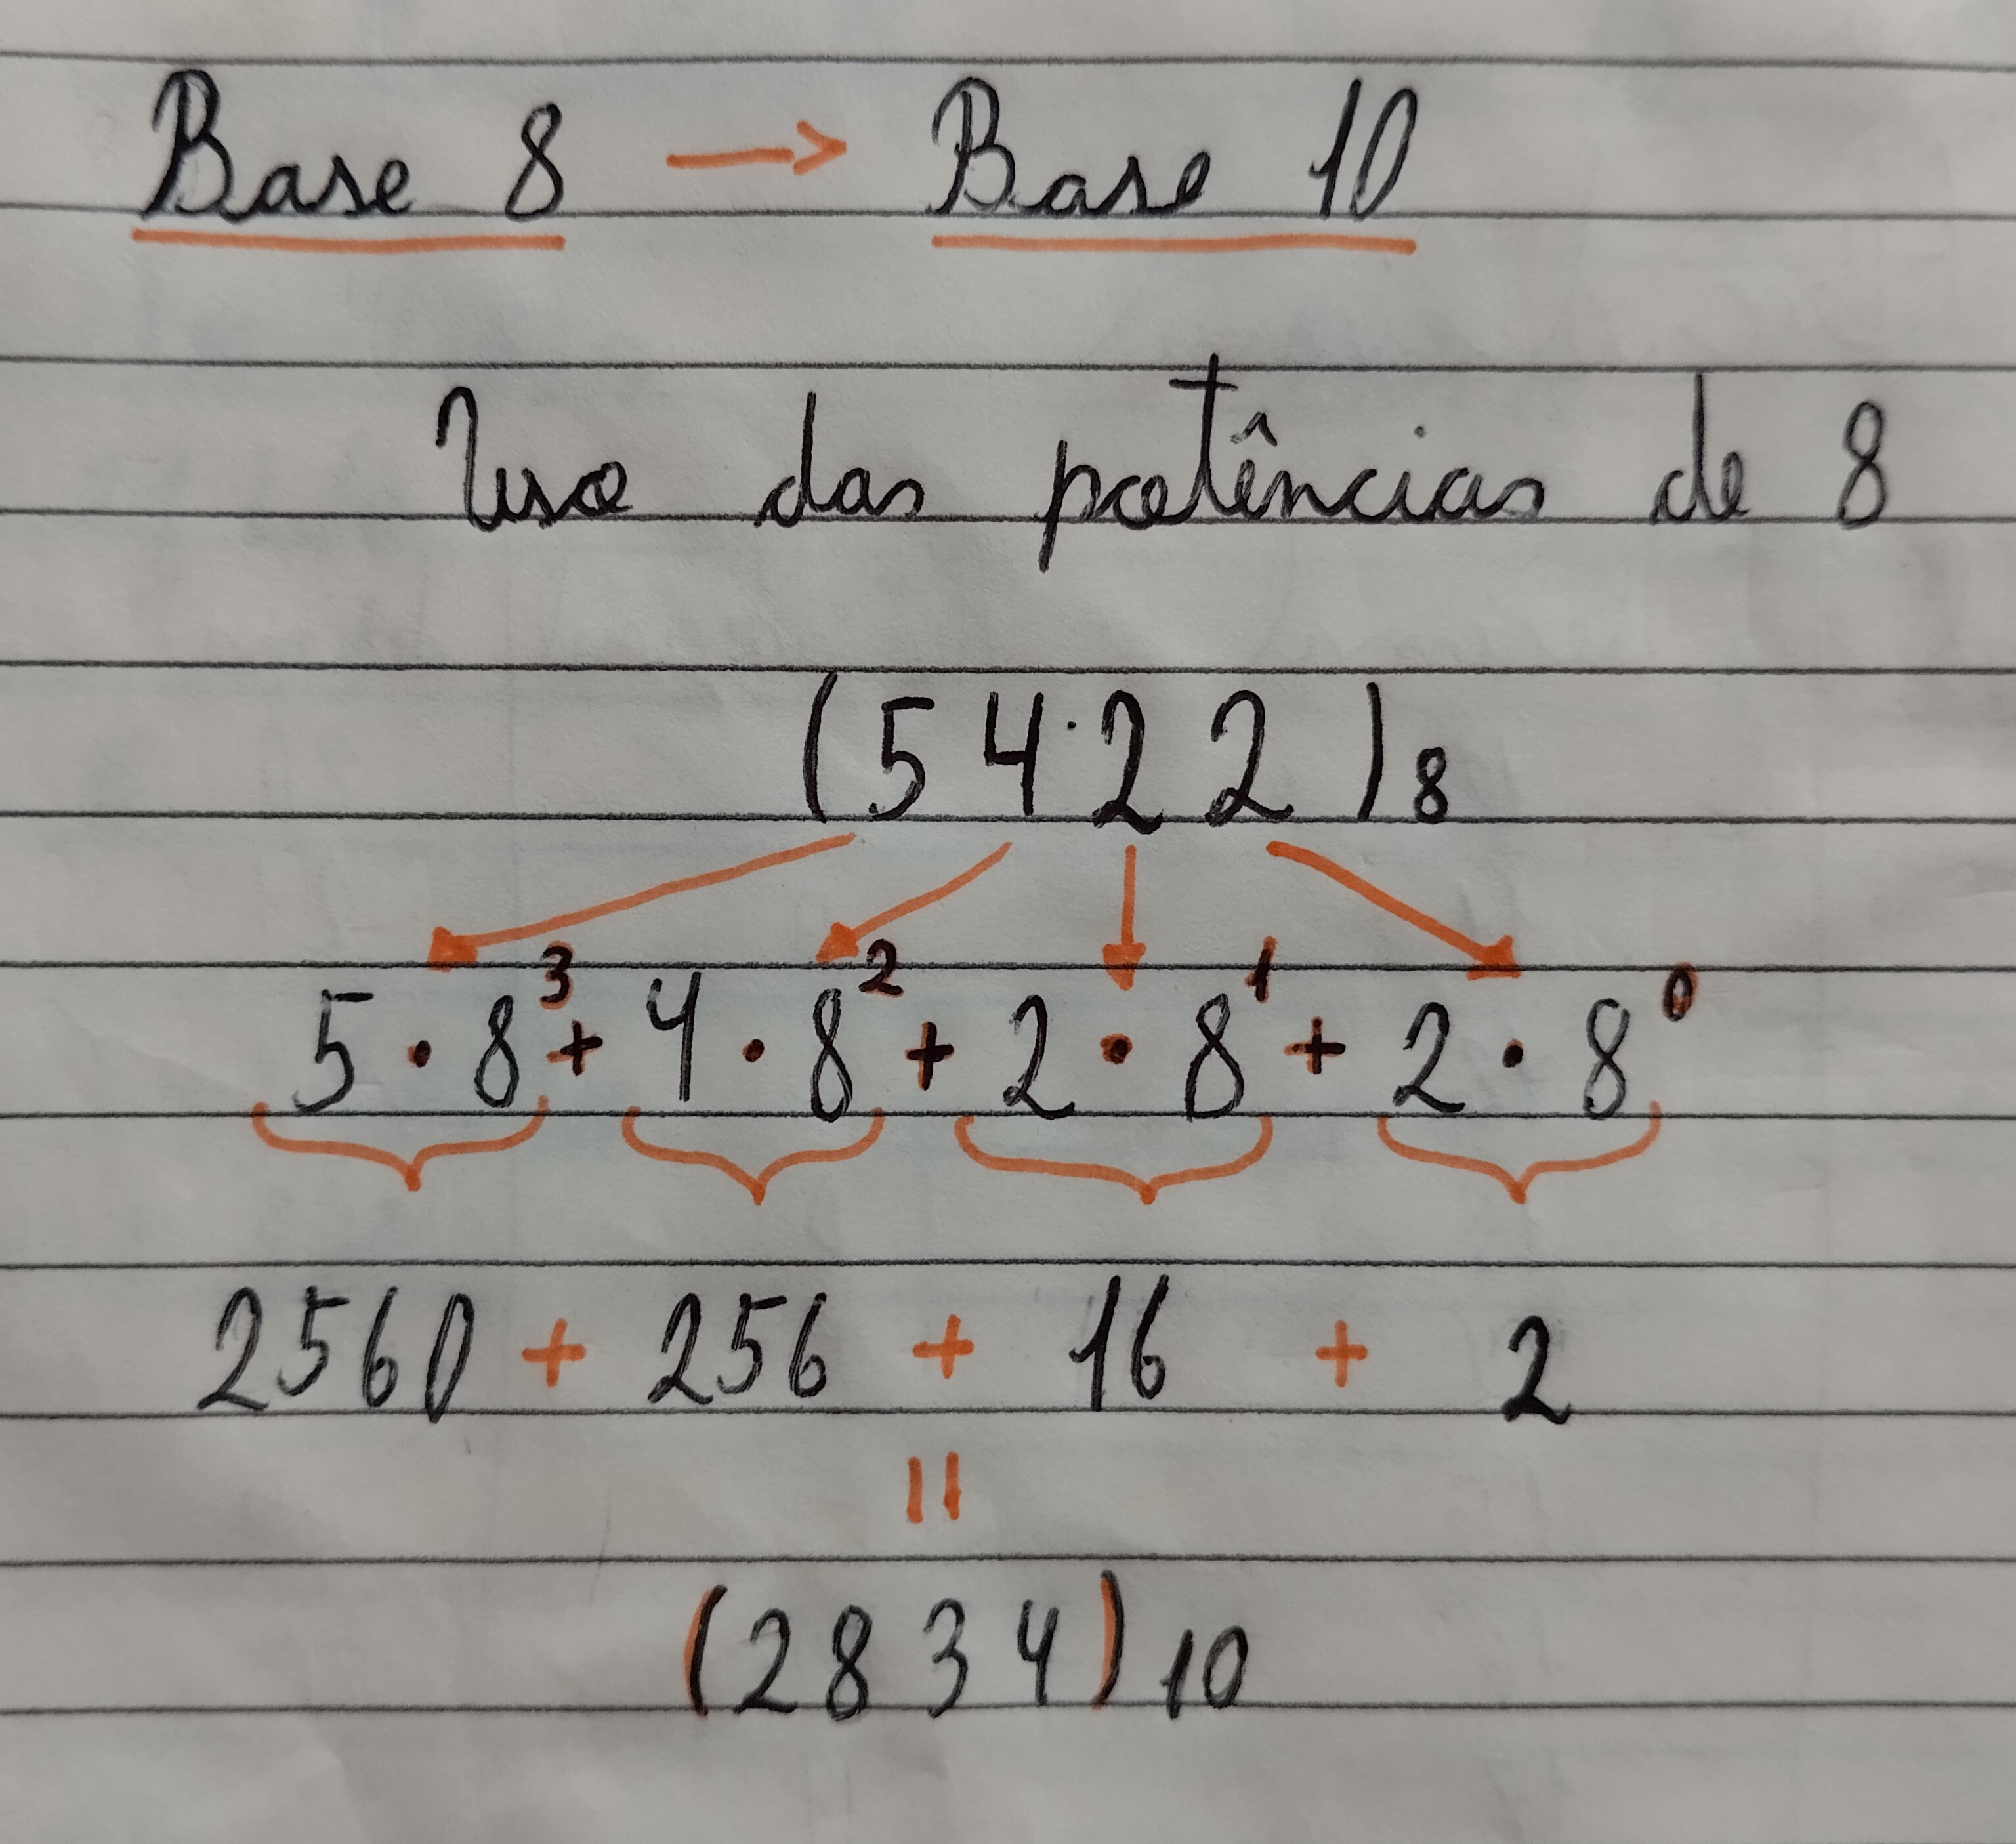 Base 8 → Base 10
Uso das potências de 8
(5422)₈
5·8³+4·8²+2·8¹+2·8⁰
2560 + 256 + 16 + 2
=
(2834)₁₀